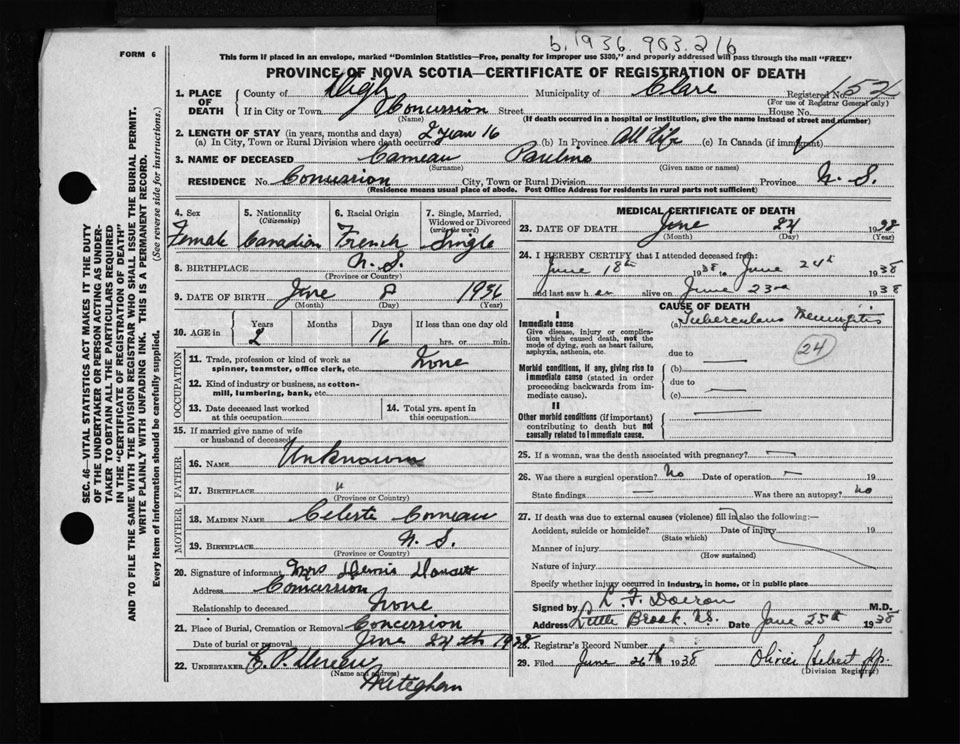 b. 1936. 903.216
FORM 6
This form if placed in an envelope, marked "Dominion Statistics—Free, penalty for improper use $300," and properly addressed will pass through the mail "FREE"
PROVINCE OF NOVA SCOTIA—CERTIFICATE OF REGISTRATION OF DEATH
1. PLACE OF DEATH
County of Digby Municipality of Clare Registered No. 152
(For use of Registrar General only)
If in City or Town Concession Street House No.
(Name) (If death occurred in a hospital or institution, give the name instead of street and number)
2. LENGTH OF STAY (in years, months and days)
(a) In City, Town or Rural Division where death occurred 2 year 16 (b) In Province All Life (c) In Canada (if immigrant)
3. NAME OF DECEASED Comeau Pauline
(Surname) (Given name or names)
RESIDENCE No. Concession City, Town or Rural Division Province N. S.
(Residence means usual place of abode. Post Office Address for residents in rural parts not sufficient)
4. Sex 5. Nationality (Citizenship) 6. Racial Origin 7. Single, Married, Widowed or Divorced (write the word)
Female Canadian French Single
8. BIRTHPLACE N. S.
(Province or Country)
9. DATE OF BIRTH June 8 1936
(Month) (Day) (Year)
10. AGE in Years Months Days If less than one day old
2 16 hrs. or min.
OCCUPATION
11. Trade, profession or kind of work as spinner, teamster, office clerk, etc. None
12. Kind of industry or business, as cotton-mill, lumbering, bank, etc.
13. Date deceased last worked at this occupation
14. Total yrs. spent in this occupation
15. If married give name of wife or husband of deceased
FATHER
16. NAME Unknown
17. BIRTHPLACE "
(Province or Country)
MOTHER
18. MAIDEN NAME Celeste Comeau
19. BIRTHPLACE N. S.
(Province or Country)
20. Signature of informant Mrs Dennis Doucett
Address Concession
Relationship to deceased None
21. Place of Burial, Cremation or Removal Concession
Date of burial or removal June 24th 1938
22. UNDERTAKER
(Name and address)
Meteghan
MEDICAL CERTIFICATE OF DEATH
23. DATE OF DEATH June 24 1938
(Month) (Day) (Year)
24. I HEREBY CERTIFY that I attended deceased from:
June 18th 1938 to June 24th 1938
and last saw h er alive on June 23rd 1938
CAUSE OF DEATH
I
Immediate cause (a) Tuberculous Meningitis
Give disease, injury or complication which caused death, not the mode of dying, such as heart failure, asphyxia, asthenia, etc.
24
due to
Morbid conditions, if any, giving rise to immediate cause (stated in order proceeding backwards from immediate cause).
(b)
due to
(c)
II
Other morbid conditions (if important) contributing to death but not causally related to immediate cause.
25. If a woman, was the death associated with pregnancy? —
26. Was there a surgical operation? No Date of operation — 19
State findings — Was there an autopsy? no
27. If death was due to external causes (violence) fill in also the following:—
Accident, suicide or homicide? Date of injury 19
(State which)
Manner of injury
(How sustained)
Nature of injury
Specify whether injury occurred in industry, in home, or in public place
Signed by L. F. Doiron M.D.
Address Little Brook, N.S. Date June 25th 1938
28. Registrar's Record Number
29. Filed June 26th 1938 Olivier Hebert J.P.
(Division Registrar)
SEC. 46—VITAL STATISTICS ACT MAKES IT THE DUTY
OF THE UNDERTAKER OR PERSON ACTING AS UNDER-
TAKER TO OBTAIN ALL THE PARTICULARS REQUIRED
IN THE "CERTIFICATE OF REGISTRATION OF DEATH"
AND TO FILE THE SAME WITH THE DIVISION REGISTRAR WHO SHALL ISSUE THE BURIAL PERMIT.
WRITE PLAINLY WITH UNFADING INK. THIS IS A PERMANENT RECORD.
Every item of information should be carefully supplied. (See reverse side for instructions.)